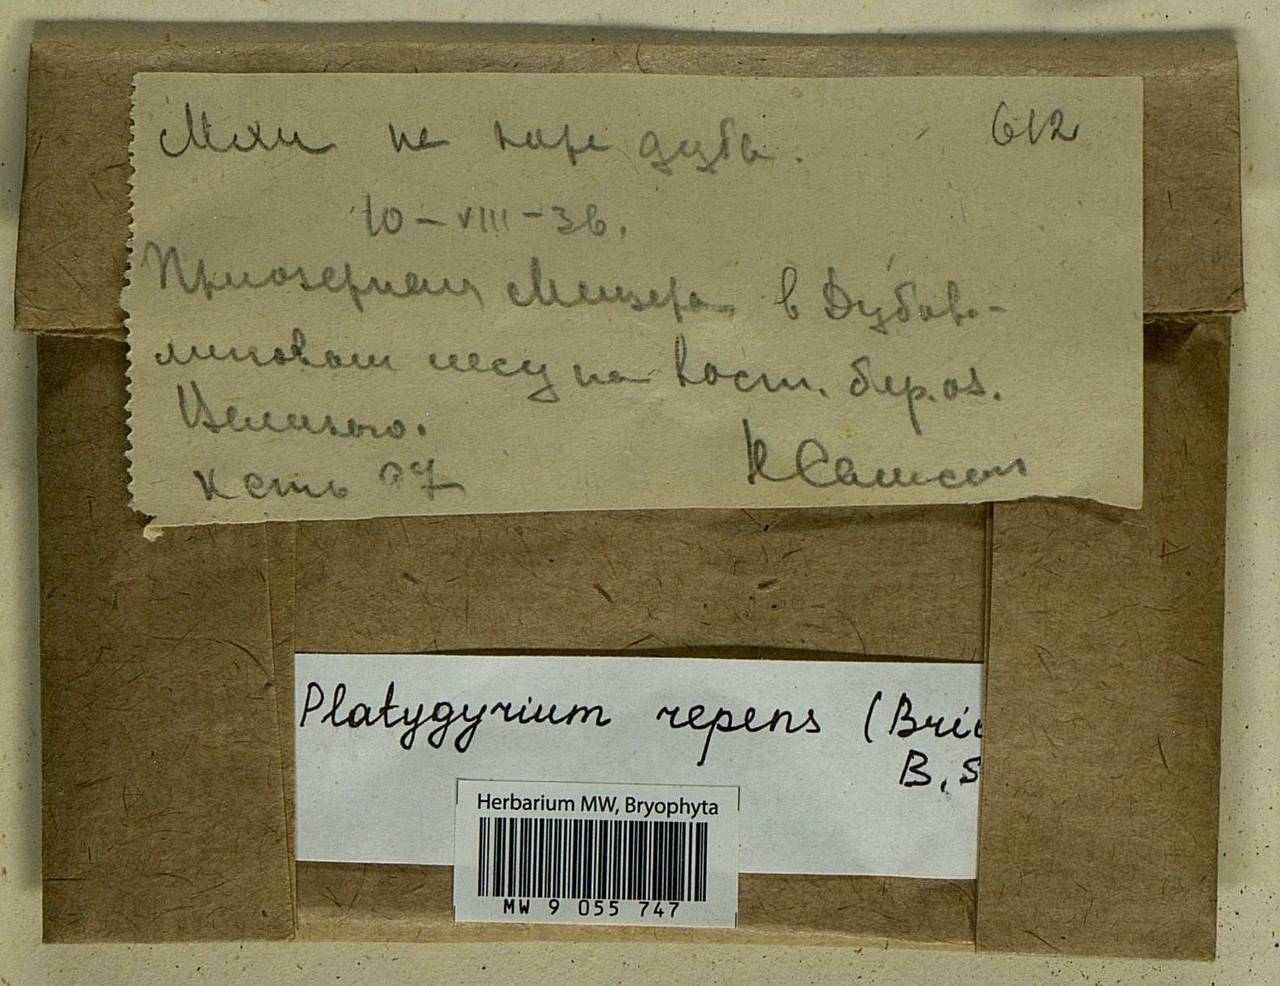 Мхи на коре дуба. 612
10-VIII-36.
Приозерная Мещера, в Дубово-
липовом лесу на вост. бер. оз.
Великого.
к
Platygyrium repens (Bri
B. S
Herbarium MW, Bryophyta
MW 9 055 747